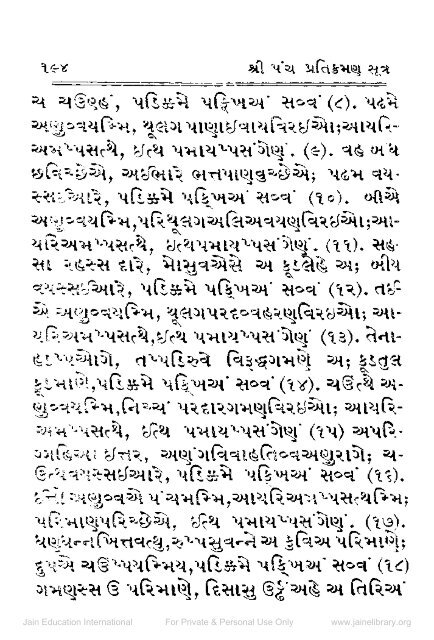 ૧૯૪ શ્રી પંચ પ્રતિક્રમણ સૂત્ર
ચ ચઉણ્હં, પડિક્કમે પક્ખિઅં સવ્વં (૮). પઢમે
અણુવ્વયમ્મિ, થૂલગ પાણાઇવાયવિરઇઓ;આયરિ-
અમપ્પસત્થે, ઇત્થ પમાયપ્પસંગેણં. (૯). વહ બંધ
છવિચ્છેએ, અઇભારે ભત્તપાણવુચ્છેએ; પઢમ વય-
સ્સઇઆરે, પડિક્કમે પક્ખિઅં સવ્વં (૧૦). બીએ
અણુવ્વયમ્મિ,પરિથૂલગઅલિઅવયણવિરઇઓ;આ-
યરિઅમપ્પસત્થે, ઇત્થપમાયપ્પસંગેણં. (૧૧). સહ-
સા રહસ્સ દારે, મોસુવએસે અ કૂડલેહે અ; બીય
વયસ્સઇઆરે, પડિક્કમે પક્ખિઅં સવ્વં (૧૨). તઇ
એ અણુવ્વયમ્મિ, થૂલગપરદવ્વહરણવિરઇઓ; આ-
યરિઅમપ્પસત્થે,ઇત્થ પમાયપ્પસંગેણં (૧૩). તેના-
હડપ્પઓગે, તપ્પડિરુવે વિરૂદ્ધગમણે અ; કૂડતુલ
કૂડમાણે,પડિક્કમે પક્ખિઅં સવ્વં (૧૪). ચઉત્થે અ-
ણુવ્વયમ્મિ,નિચ્ચં પરદારગમણવિરઇઓ; આયરિ-
અમપ્પસત્થે, ઇત્થ પમાયપ્પસંગેણં (૧૫) અપરિ-
ગ્ગહિઆ ઇત્તર, અણંગવિવાહતિવ્વઅણુરાગે; ચ-
ઉત્થવયસ્સઇઆરે, પડિક્કમે પક્ખિઅં સવ્વં (૧૬).
ઇત્તો અણુવ્વએ પંચમમ્મિ,આયરિઅમપ્પસત્થમ્મિ;
પરિમાણપરિચ્છેએ, ઇત્થ પમાયપ્પસંગેણં. (૧૭).
ધણધન્નખિત્તવત્થુ,રુપ્પસુવન્ને અ કુવિઅ પરિમાણે;
દુપએ ચઉપ્પયમ્મિય,પડિક્કમે પક્ખિઅં સવ્વં (૧૮)
ગમણસ્સ ઉ પરિમાણે, દિસાસુ ઉડ્ઢં અહે અ તિરિઅં
Jain Education International For Private & Personal Use Only www.jainelibrary.org